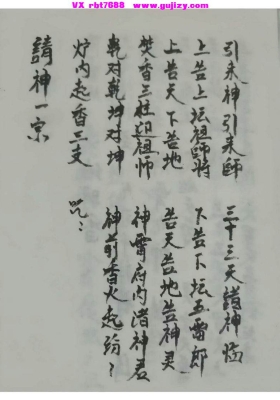 VX rbt7688 www.gujizy.com
引来神引来師 三十三天諸神临
上告上坛祖師将 下告下坛五雷郎
上告天下告地 告天告地告神灵
焚香三柱迎祖师 神雷府内诸神君
乾对乾坤对坤 神前香火起纷々
炉内起香三支 咒:
請神一宗